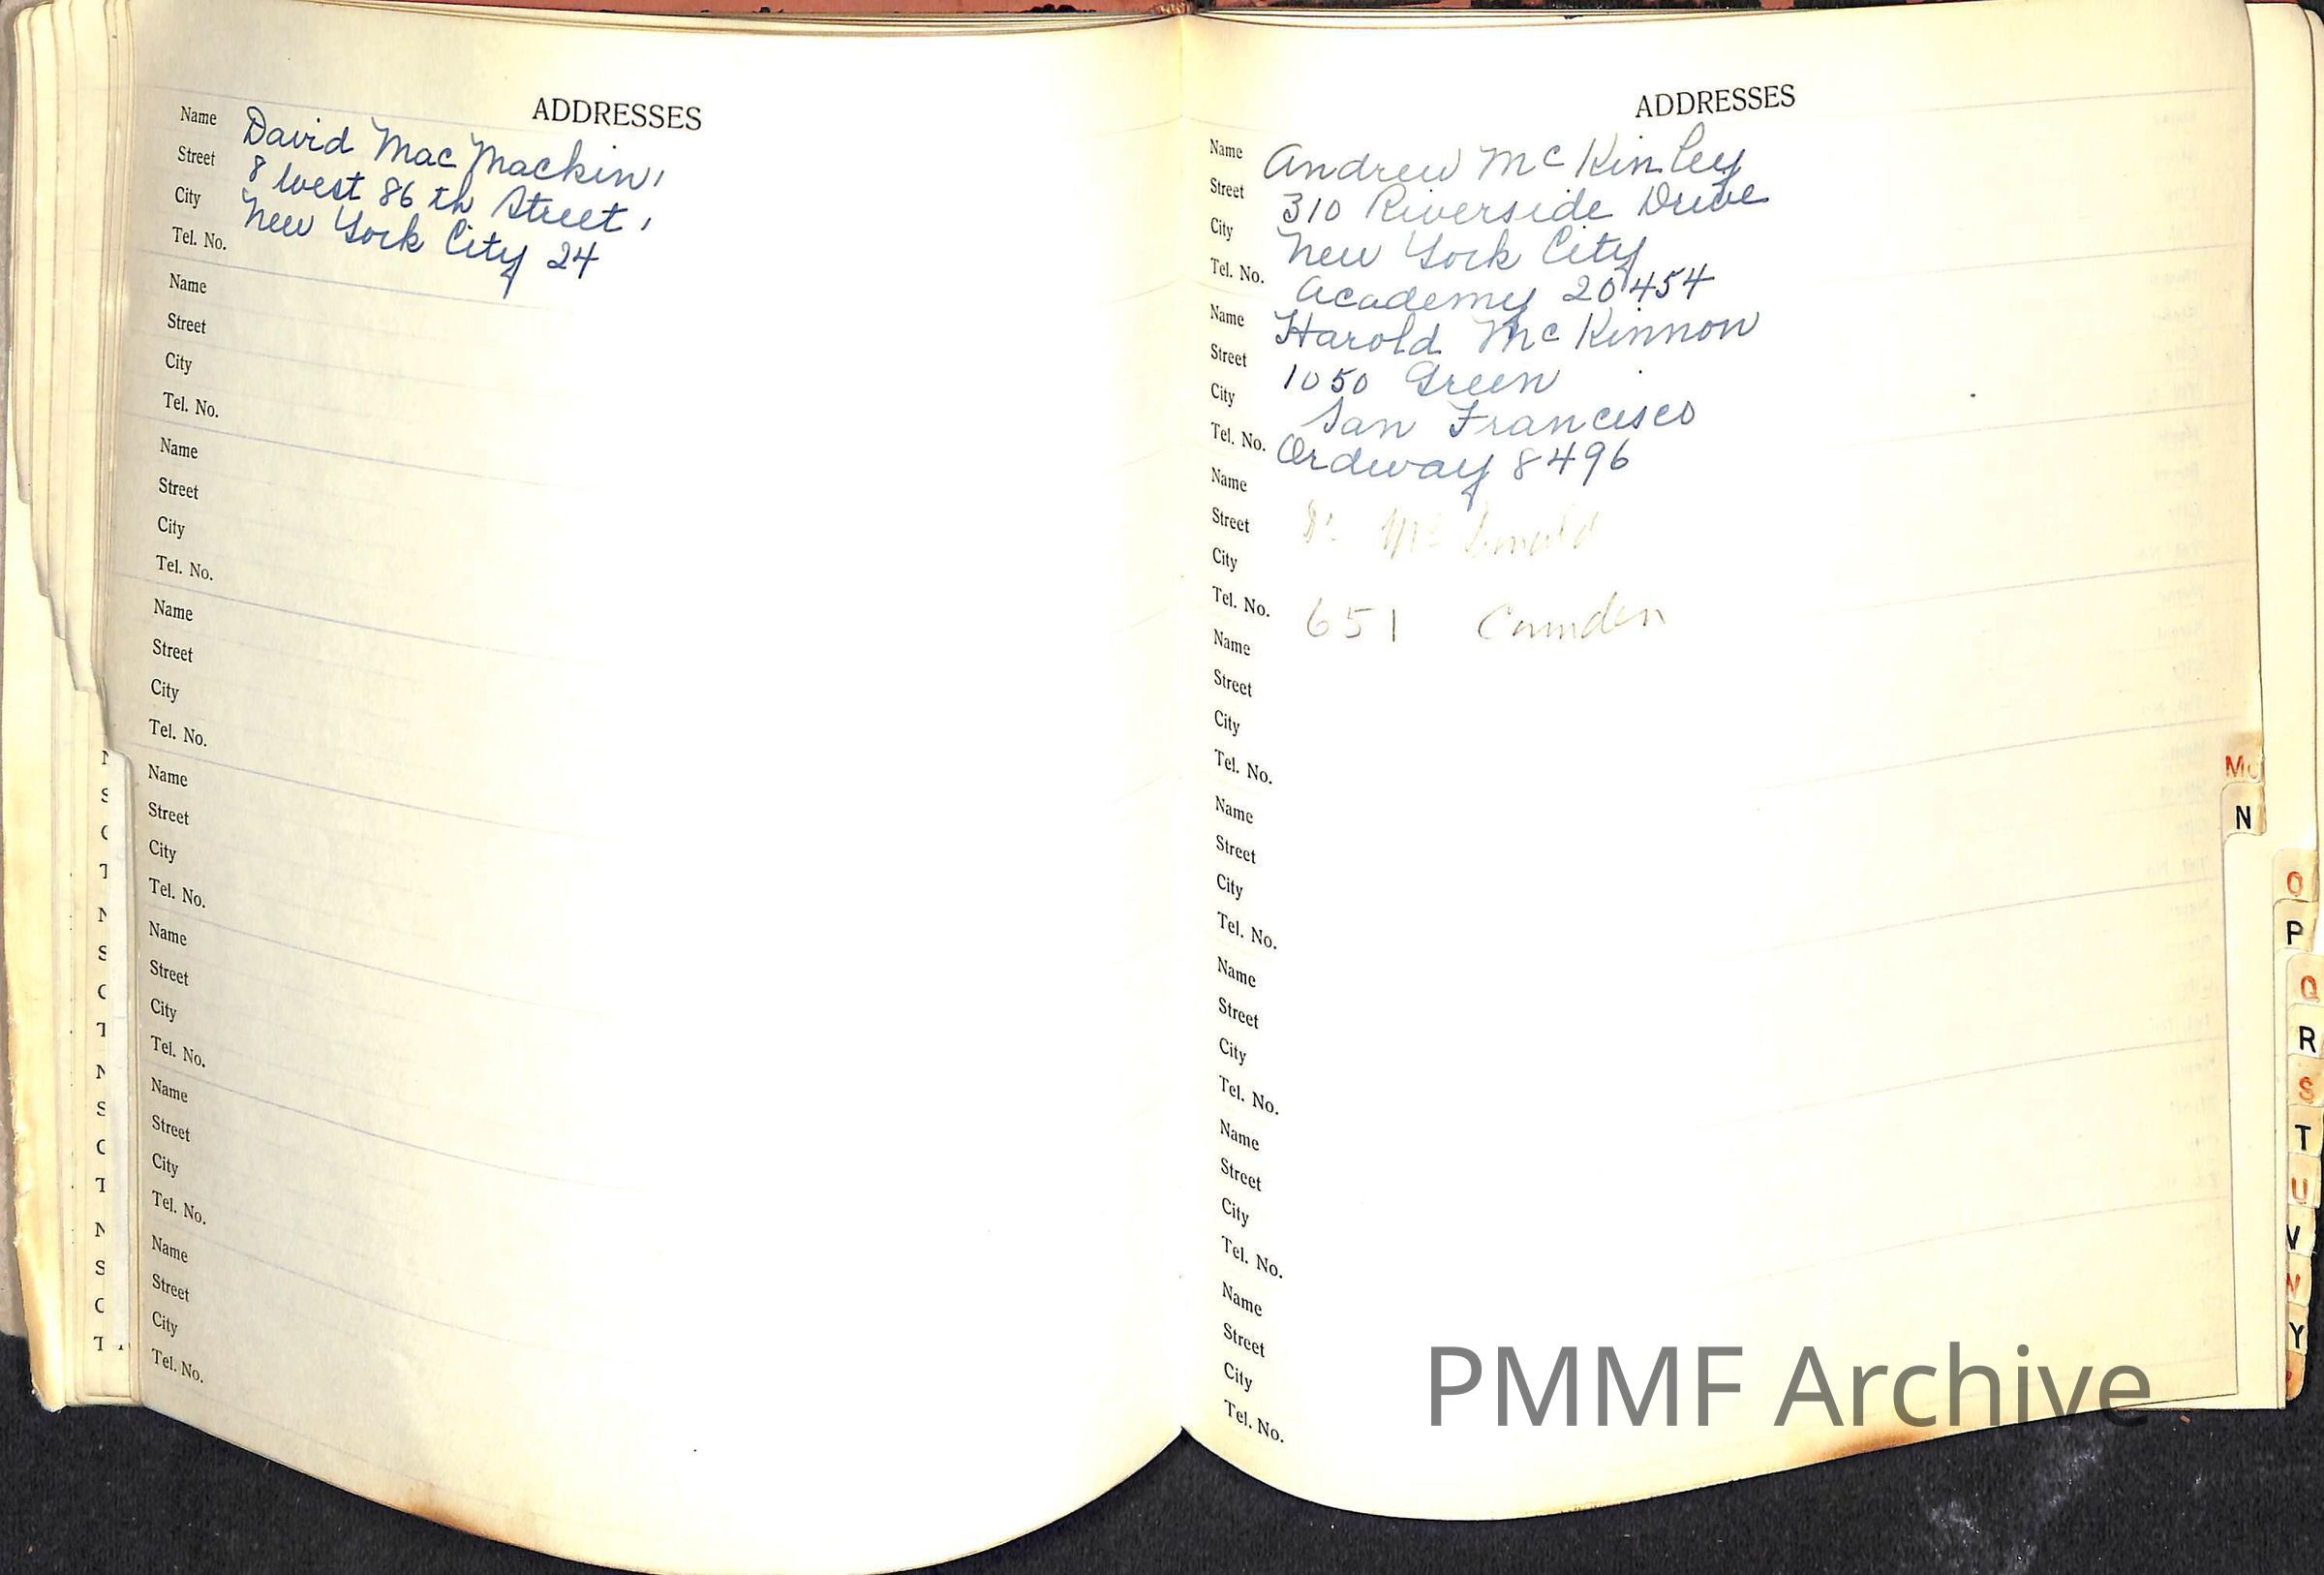 ADDRESSES
Name David Mac Mackin,
Street 8 West 86 th Street,
City New York City 24
Tel. No.
Name
Street
City
Tel. No.
Name
Street
City
Tel. No.
Name
Street
City
Tel. No.
Name
Street
City
Tel. No.
Name
Street
City
Tel. No.
Name
Street
City
Tel. No.
Name
Street
City
Tel. No.
ADDRESSES
Name Andrew McKinley
Street 310 Riverside Drive
City New York City
Tel. No. Academy 20454
Name Harold McKinnon
Street 1050 Green
City San Francisco
Tel. No. Ordway 8496
Name
Street Dr McDonald
City
Tel. No. 651 Camden
Name
Street
City
Tel. No.
Name
Street
City
Tel. No.
Name
Street
City
Tel. No.
Name
Street
City
Tel. No.
Name
Street
City
Tel. No.
Mc
N
O
P
Q
R
S
T
U
V
W
Y
PMMF Archive